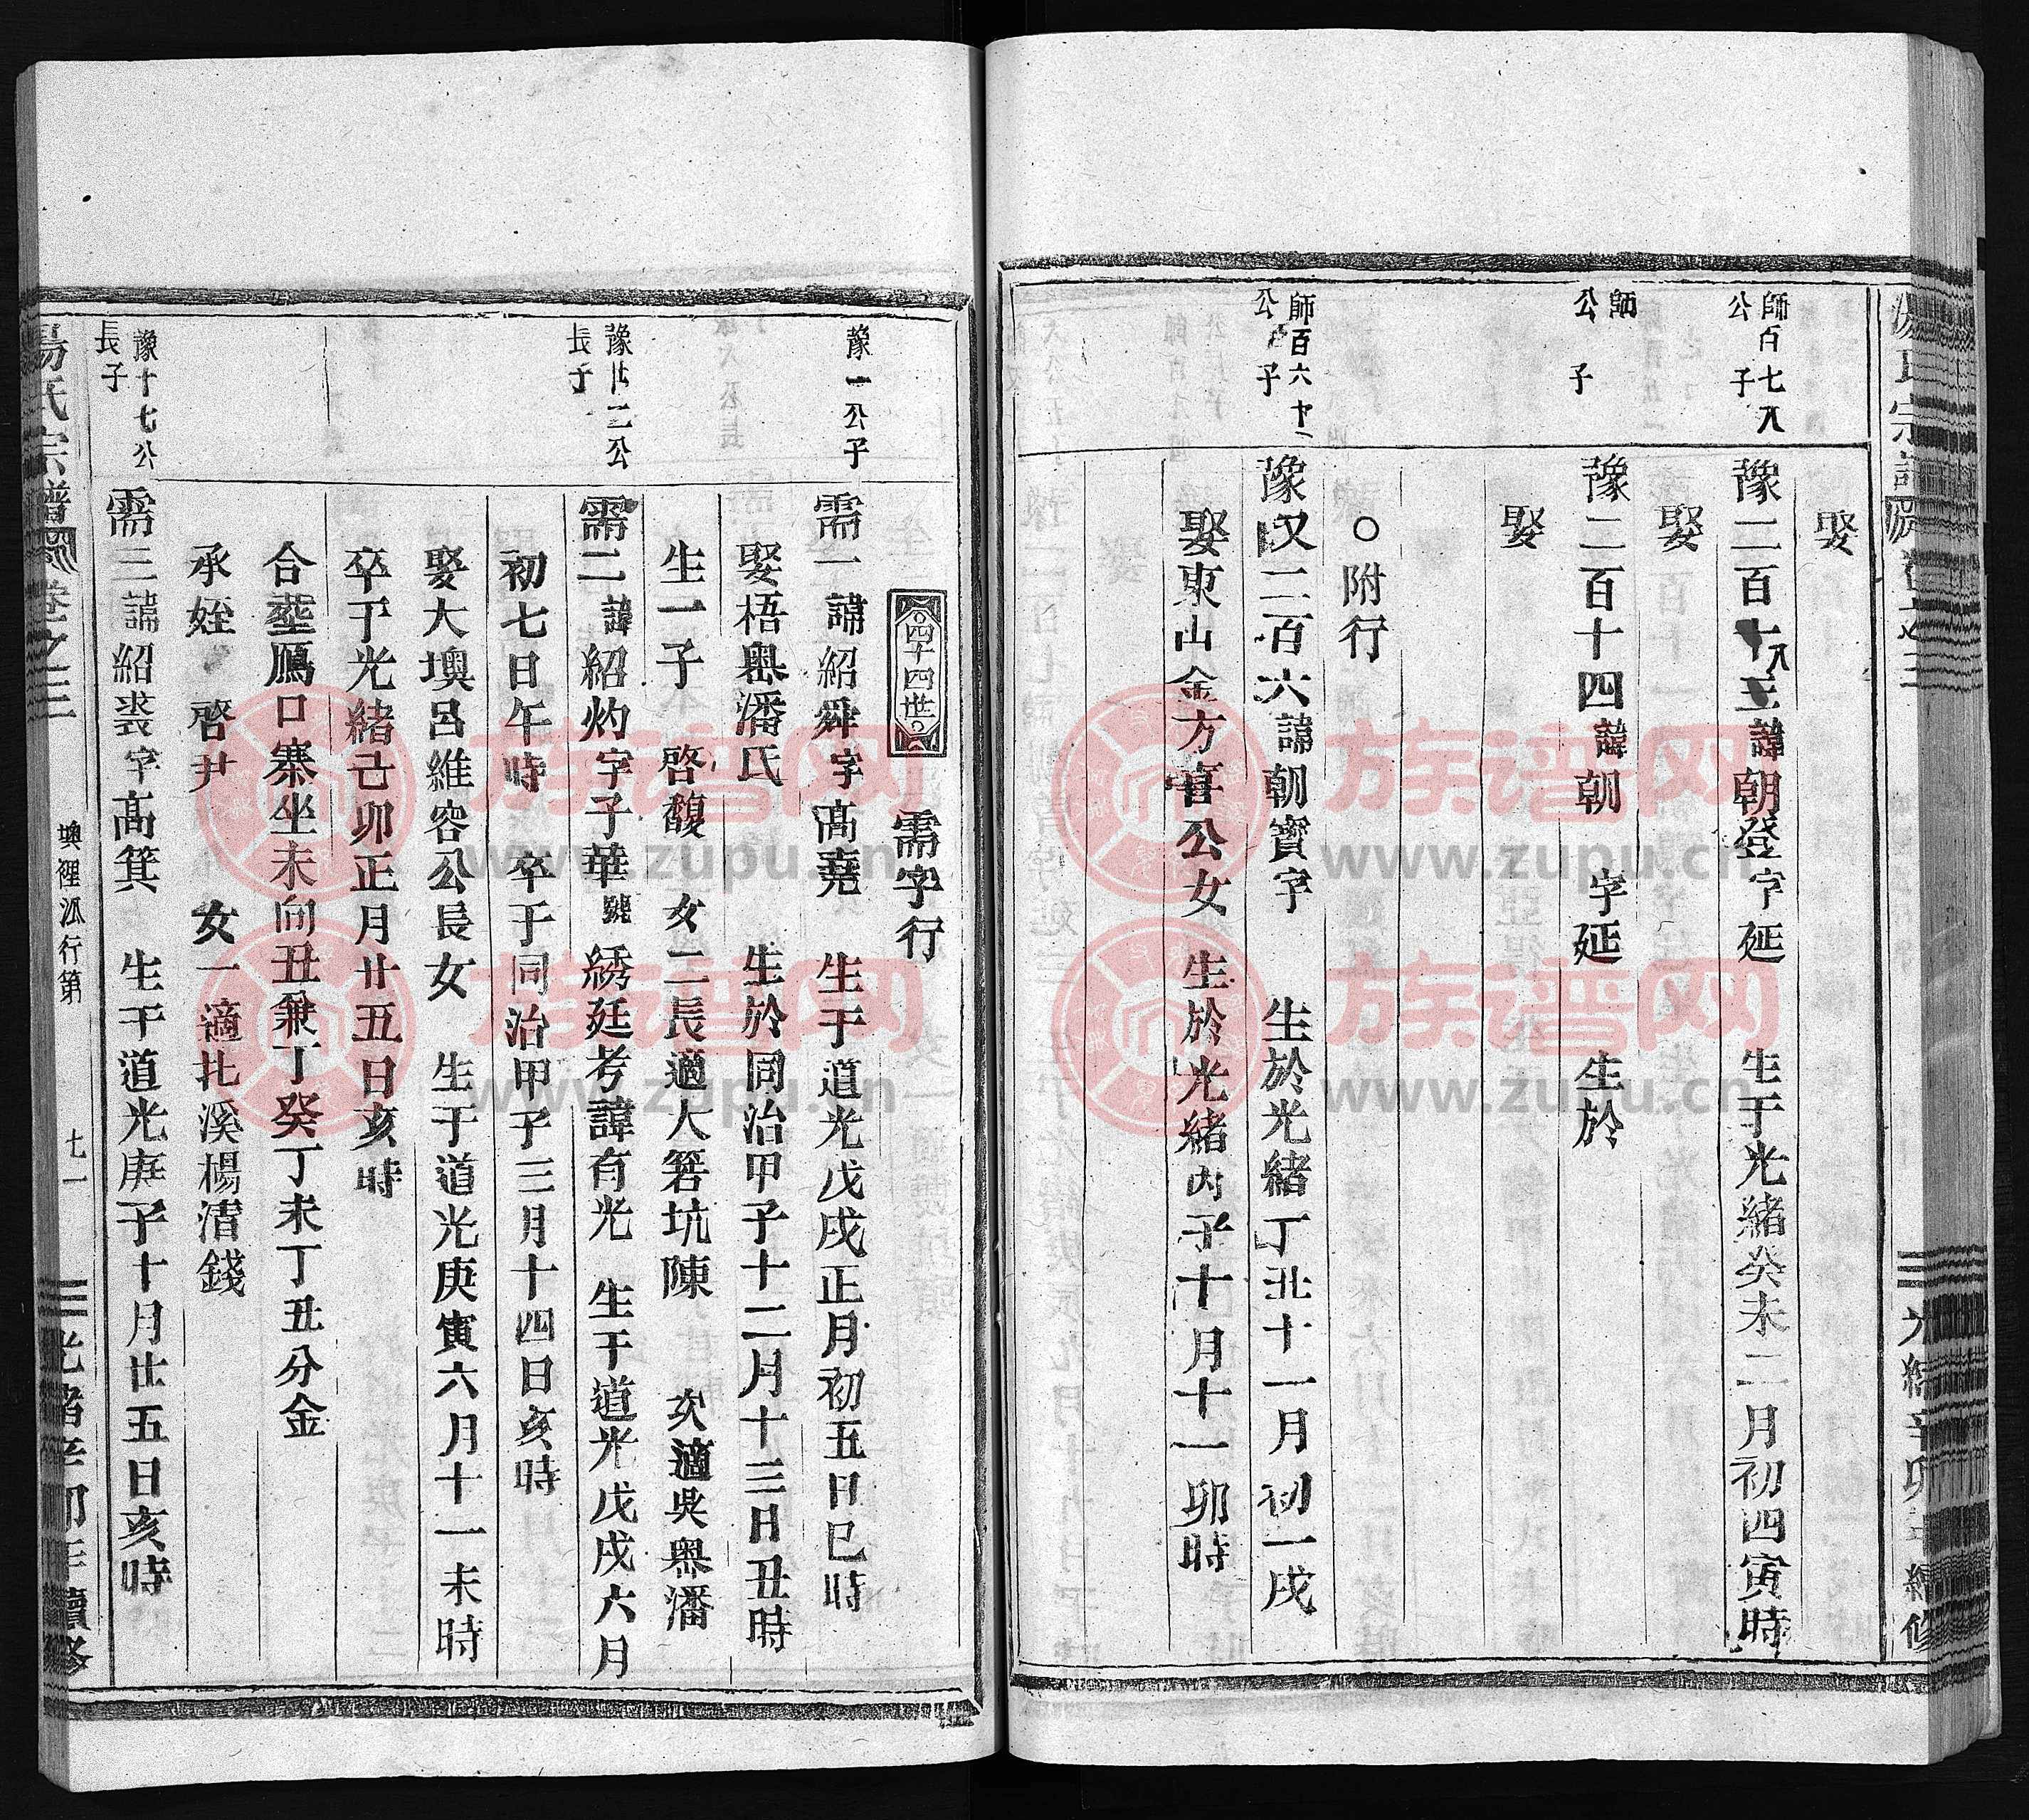 娶
師百七八
公子
豫二百十八諱朝登字延　生于光緒癸未二月初四寅時
娶
師
公子
豫二百十四諱朝　字延　生於
娶
○附行
師百六十一
公子
豫又二百六諱朝寶字　生於光緒丁丑十一月初一戌
娶東山金方喜公女　生於光緒丙子十月十一卯時
四十四世　需字行
豫一公子
需一諱紹舜字高堯　生于道光戊戌正月初五日巳時
娶梧奧潘氏　生於同治甲子十二月十三日丑時
生一子　啓馥　女二長適大箬坑陳　次適吳奧潘
豫廿二公
長子
需二諱紹灼字子華號綉廷考諱有光　生于道光戊戌六月
初七日午時　卒于同治甲子三月十四日亥時
娶大墺呂維容公長女　生于道光庚寅六月十一未時
卒于光緒己卯正月廿五日亥時
合塟鴈口寨坐未向丑兼丁癸丁未丁丑分金
承姪　啓尹　女一適北溪楊淸錢
豫十七公
長子
需三諱紹裘字高箕　生于道光庚子十月廿五日亥時
湯氏宗譜　卷之三　墺裡派行第　七一　光緒辛卯年續修
族谱网
www.zupu.cn
族谱网
www.zupu.cn
族谱网
www.zupu.cn
族谱网
www.zupu.cn